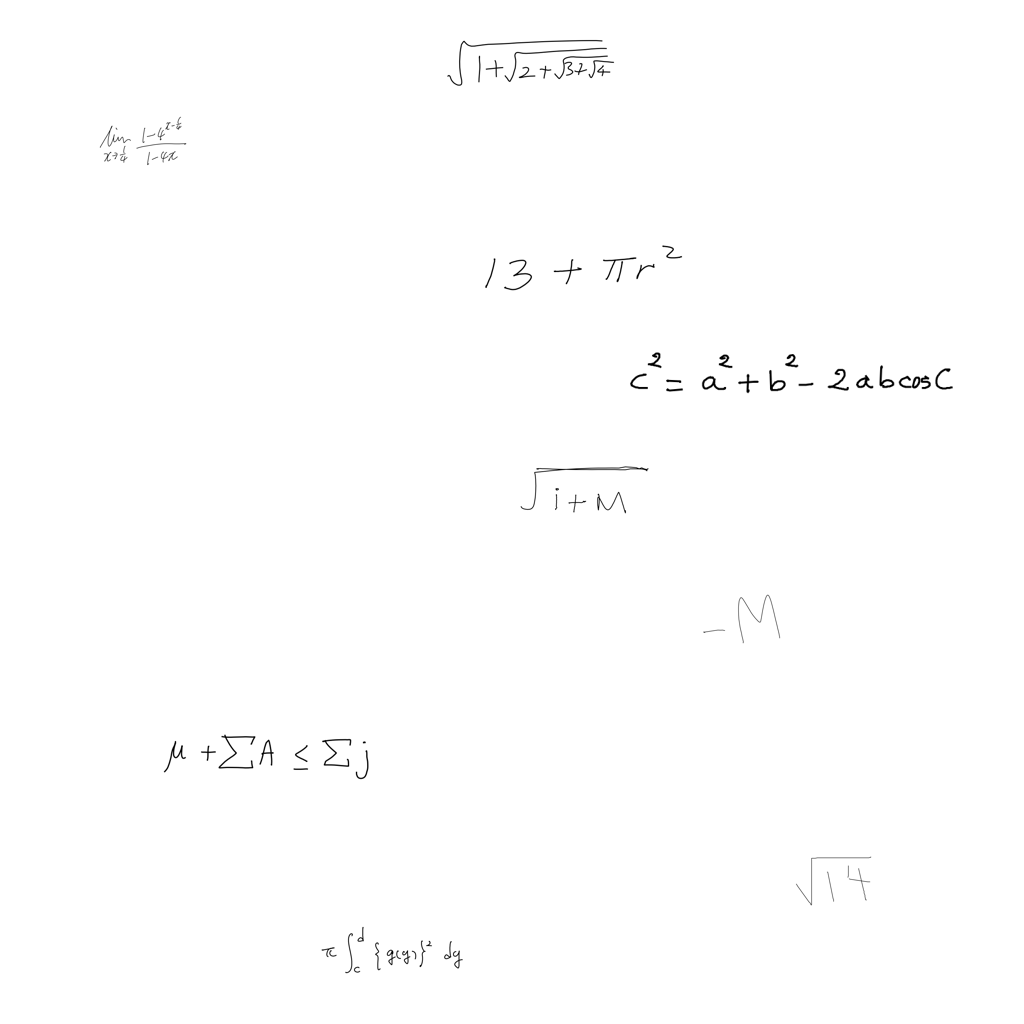 \sqrt{1+\sqrt{2+\sqrt{3+\sqrt{4}}}}
\lim_{x \to \frac{1}{4}} \frac{1-4^{x-\frac{1}{4}}}{1-4x}
13 + \pi r^2
c^2 = a^2 + b^2 - 2ab\cos C
\sqrt{i+M}
-M
\mu + \sum A \leq \sum j
\sqrt{14}
\pi \int_c^d \{g(y)\}^2 dy